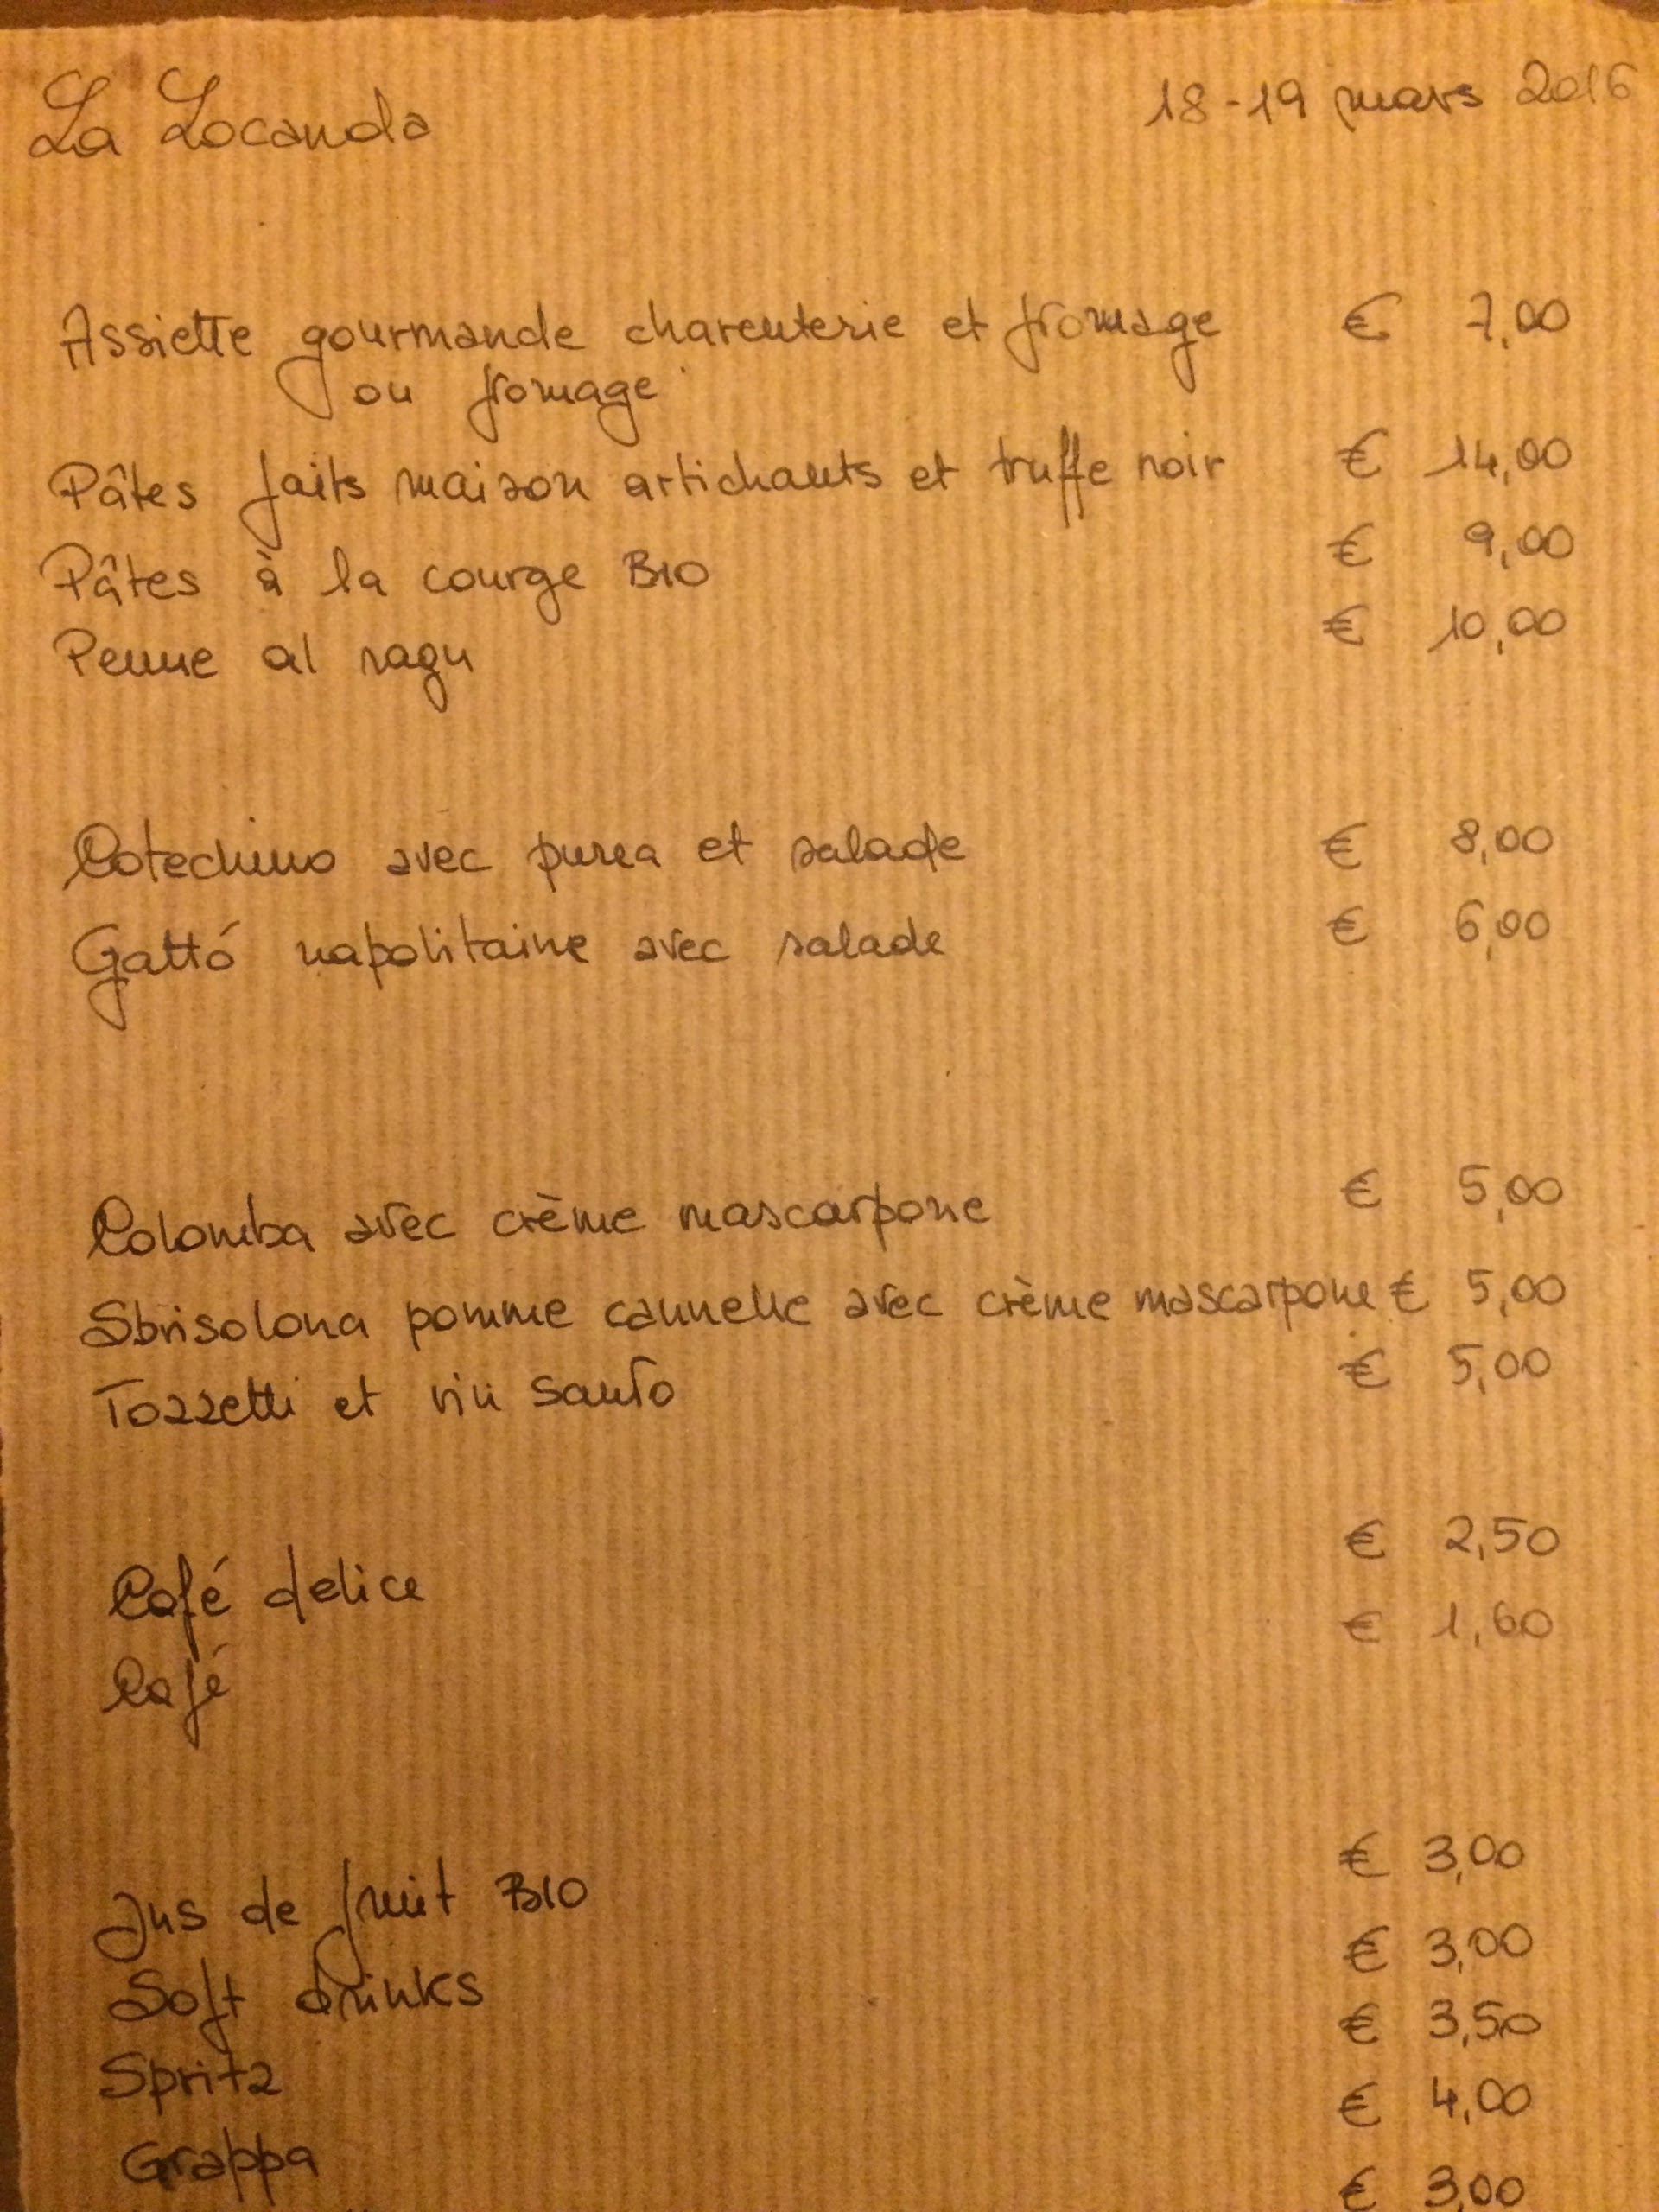 La Locanda 18-19 mars 2016
Assiette gourmande charcuterie et fromage € 7,00
ou fromage
Pâtes faits maison artichauts et truffe noir € 14,00
Pâtes à la courge BIO € 9,00
Penne al ragu € 10,00
Cotechino avec purea et salade € 8,00
Gattó napolitaine avec salade € 6,00
Colomba avec crème mascarpone € 5,00
Sbrisolona pomme cannelle avec crème mascarpone € 5,00
Tozzetti et vin santo € 5,00
Café delice € 2,50
Café € 1,60
Jus de fruit BIO € 3,00
Soft drinks € 3,00
Spritz € 3,50
Grappa € 4,00
€ 3,00